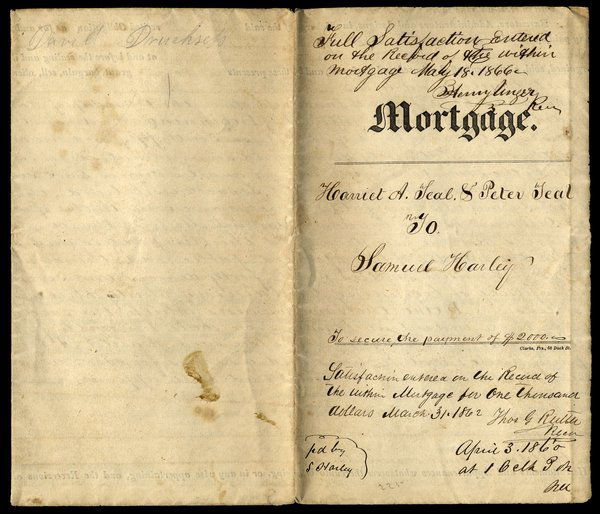 David Druckseb
Full Satisfaction Entered
on the Record of the within
mortgage May 18. 1866
Henry Unger
Rec
Mortgage.
Harriet A. Teal. & Peter Teal
To
Samuel Harley
To secure the payment of $2000.
Satisfaction entered on the Record of
the within Mortgage for One thousand
dollars March 31. 1862 Thos G
Rec
pd by
S Harley
April 3. 1860
at 1 Oclk P M
Rec
225